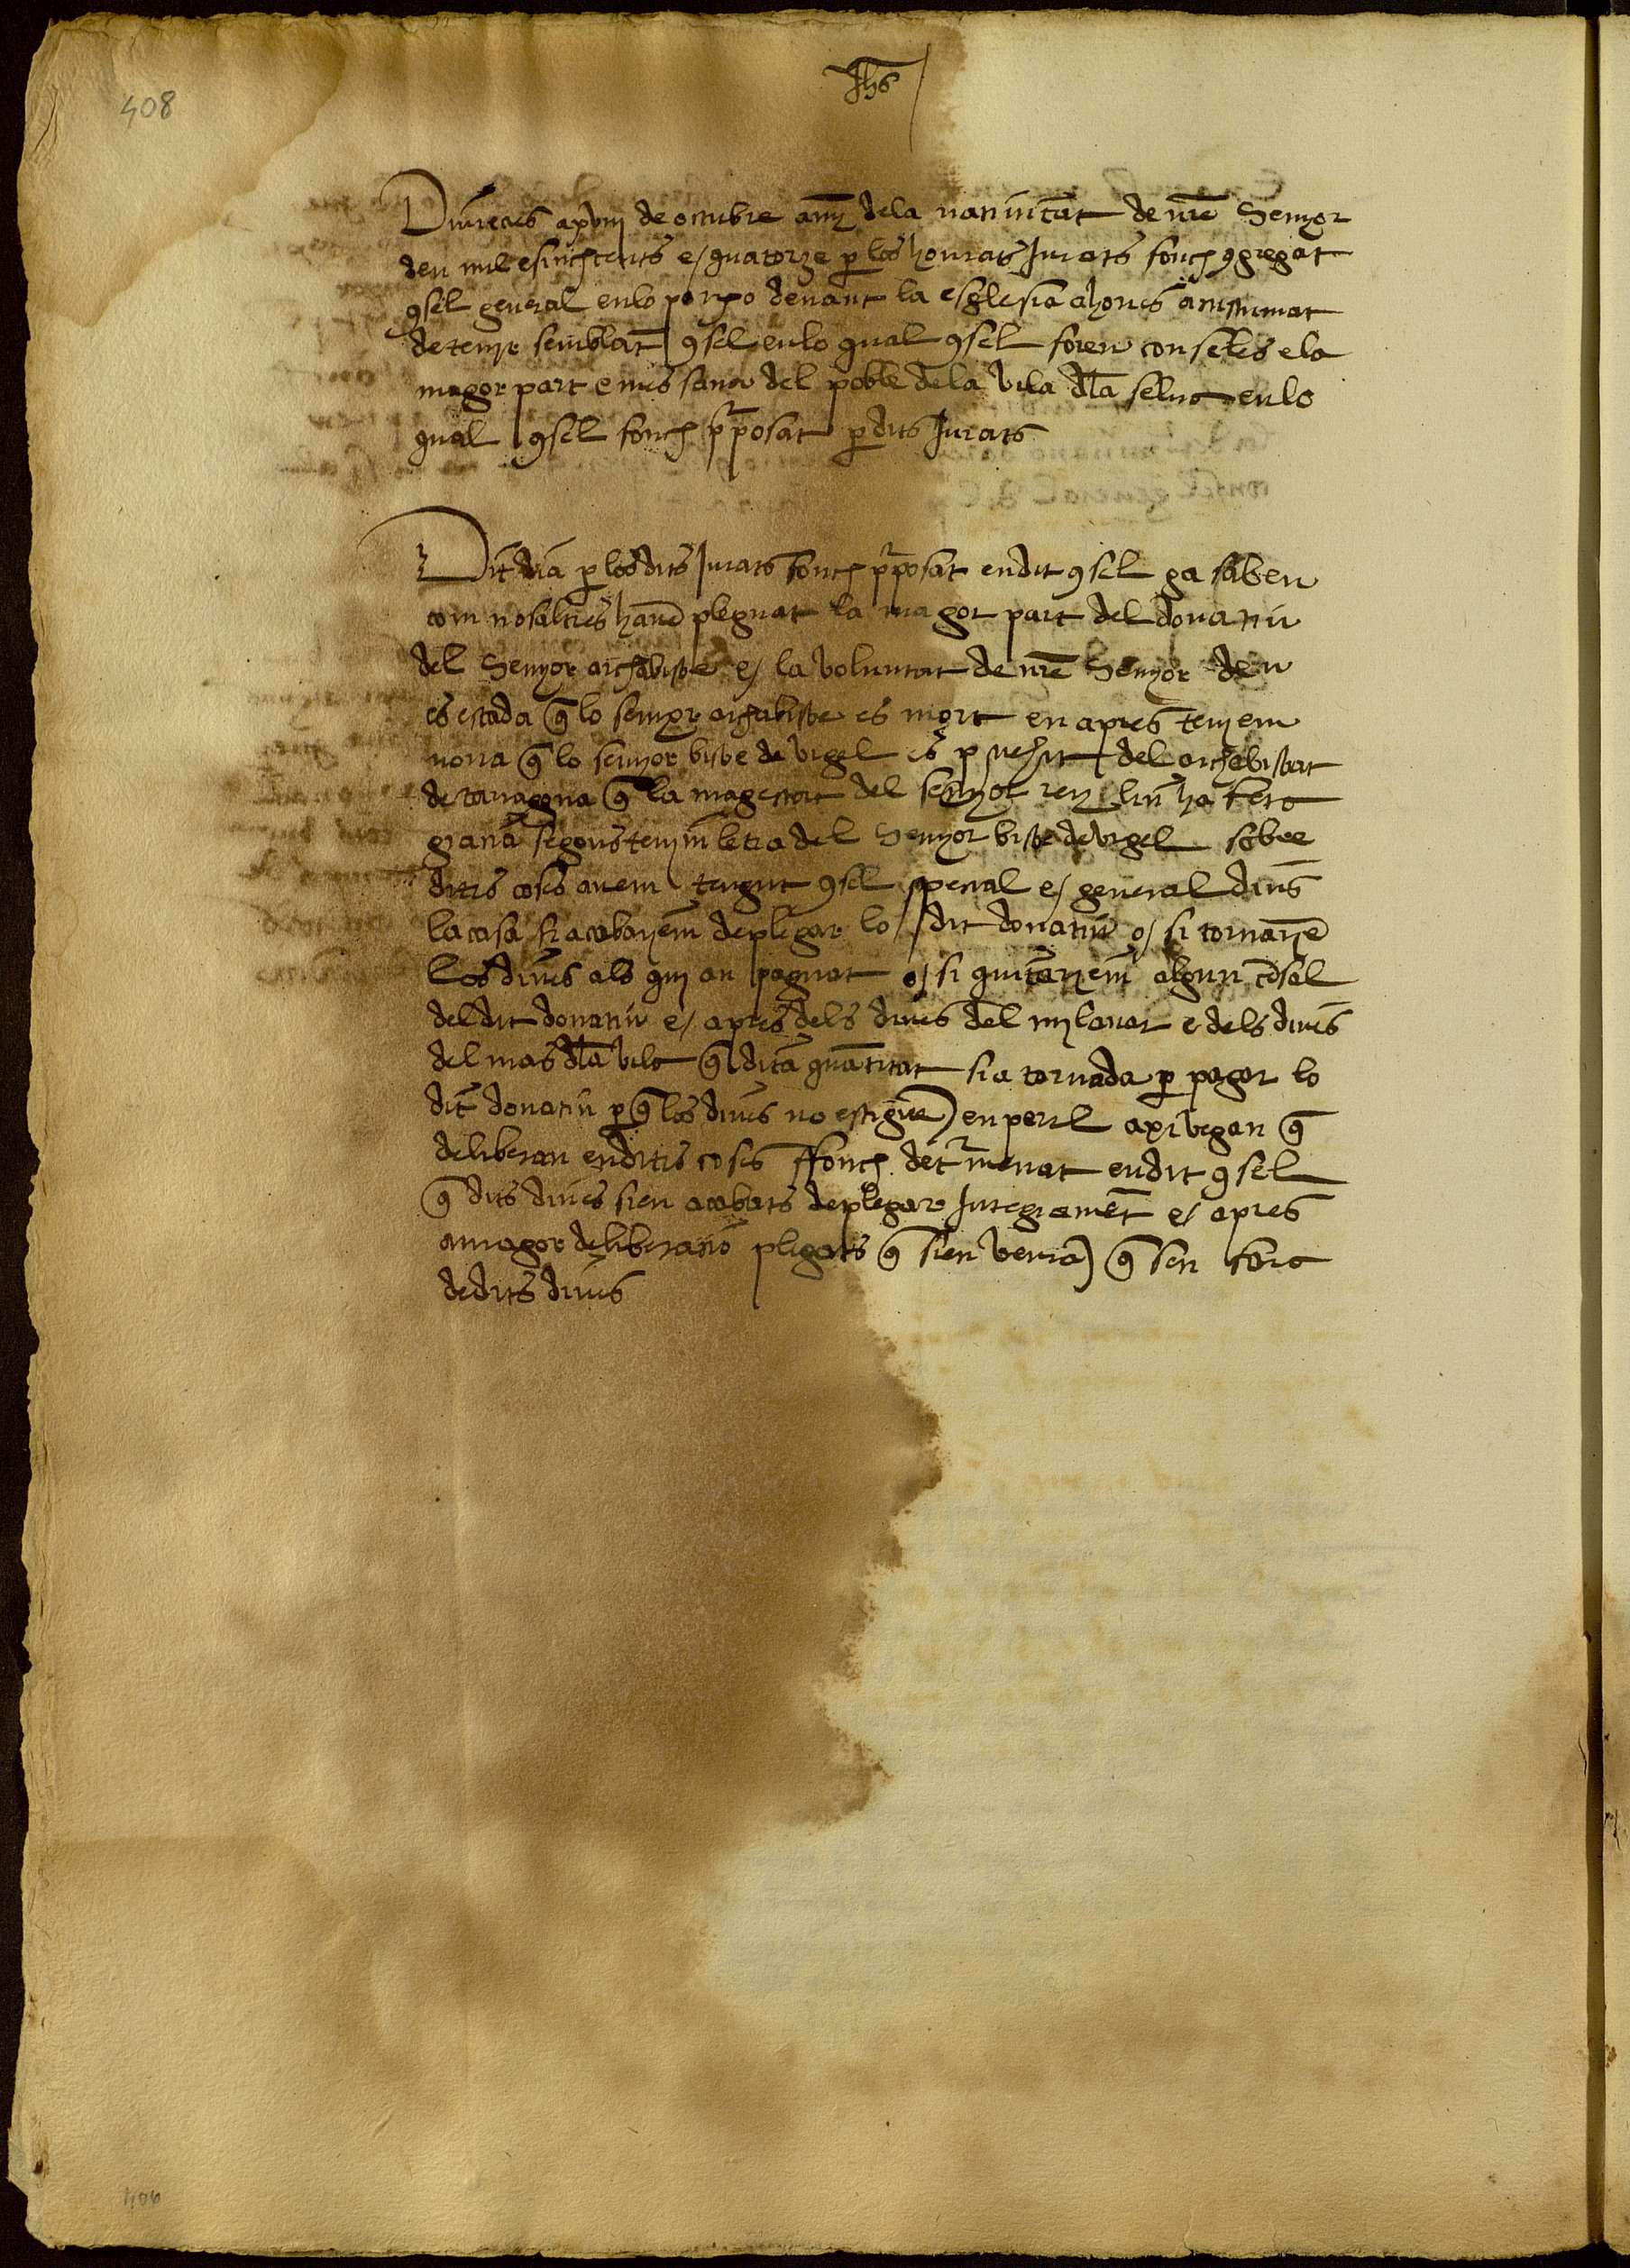 408
Jhs
Dimecres a xviij de octubre any dela nativitat de nr̃e Senyor
deu mil e sinchcents e/ quatorze ꝑ los honrats Jurats fonch ꝯgregat
ꝯsel general en lo porxo denant la esglesia ahont es acustumat
de tenir semblãt ꝯsel en lo qual ꝯsel foren consellers e la
magor part e mes sana del poble de la vila dl̃a selva en lo
qual ꝯsel fonch ꝓposat ꝑ dits Jurats
Dit dia ꝑ los dits Jurats fonch ꝓposat en dit ꝯsel ga saben
com nosaltres havẽ plegat la magor part del donatiu
del Senyor archabisbe e/ la voluntat de nr̃e Senyor deu
es estada q̃ lo senyor archabisbe es mort en apres tenim
nova q̃ lo senyor bisbe de urgel es ꝓvehit del archabisbat
de tarragona q̃ la magestat del senyor rey lin ha feta
gracia segons tenim letra del Senyor bisbe de urgel sobre
dites coses avem tengut ꝯsel special e/ general dins
la casa si acabariem de plegar lo dit donatiu o/ si tornariẽ
los dines als qui an pagat o/ si quitariem algun cẽsal
del dit donatiu e/ apres dels dines del mylavar e dels dines
del mas dl̃a vila q̃ dita quãtitat sia tornada ꝑ pagar lo
dit donatiu ꝑ q̃ los dines no estiguẽ en peril axi vegan q̃
deliberan en dites coses ffonch det'menat en dit ꝯsel
q̃ dits dines sien acabats de plegar Integramẽt e/ apres
a magor deliberacio plegats q̃ sien veurã q̃ sen fara
de dits dines
406